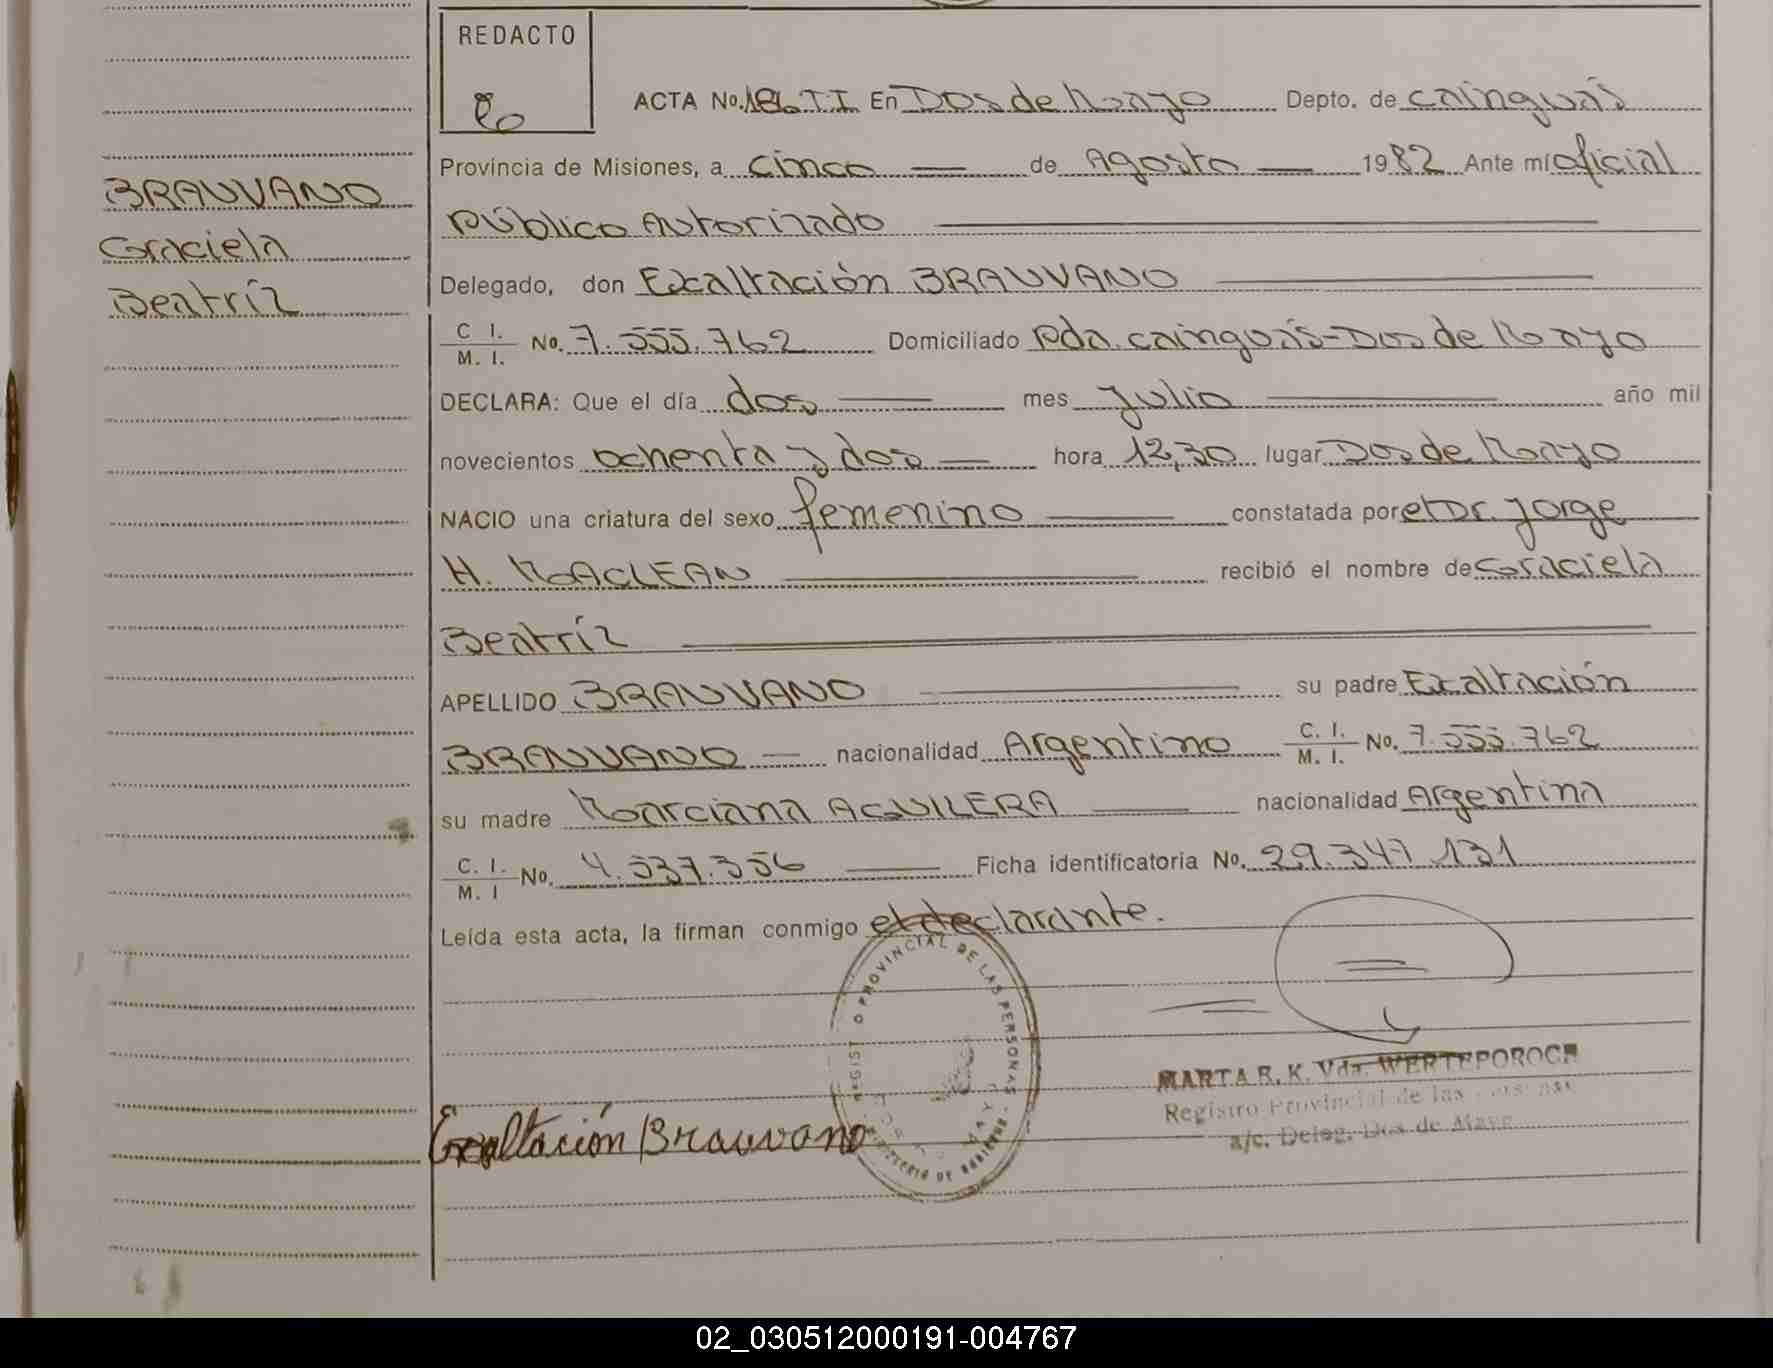 REDACTO
ACTA No. 186 T.I. En Dos de Mayo Depto. de Cainguás
Provincia de Misiones, a cinco de Agosto 1982 Ante mí oficial
Público Autorizado
Delegado, don Exaltación BRAUVANO
C I. M. I. No. 7.555.762 Domiciliado Pda. Cainguás-Dos de Mayo
DECLARA: Que el día dos mes Julio año mil
novecientos ochenta y dos hora 12,30 lugar Dos de Mayo
NACIO una criatura del sexo femenino constatada por el Dr. Jorge
H. MACLEAN recibió el nombre de Graciela
Beatríz
APELLIDO BRAUVANO su padre Exaltación
BRAUVANO nacionalidad Argentino C. I. M. I. No. 7.555.762
su madre Marciana AGUILERA nacionalidad Argentina
C. I. M. I No. 4.537.356 Ficha identificatoria No. 29.347.131
Leída esta acta, la firman conmigo el declarante.
BRAUVANO
Graciela
Beatríz
PROVINCIAL DE LAS PERSONAS
Exaltación Brauvano
MARTA R. K. Vda. WERTEPOROCH
Registro Provincial de las
a/c. Deleg. Dos de Mayo
02_030512000191-004767